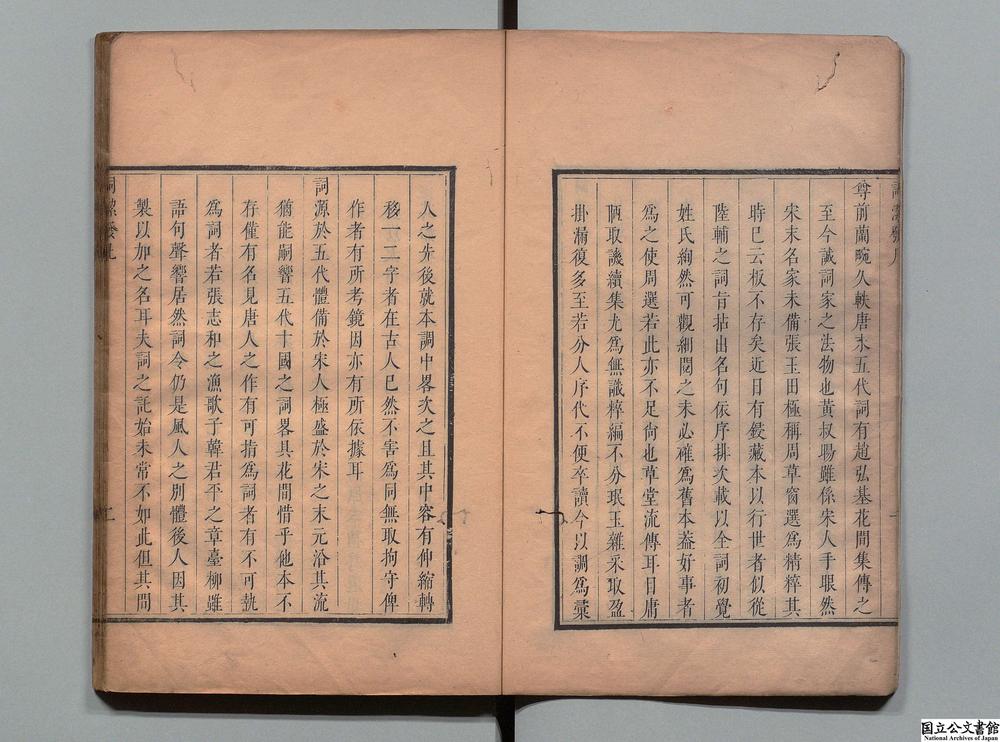 尊前蘭畹久軼唐末五代詞有趙弘基花間集傳之
至今誠詞家之法物也黄叔暘雖係宋人手眼然
宋末名家未備張玉田極稱周草窗選爲精粹其
時已云板不存矣近日有鋟藏本以行世者似從
陸輔之詞旨拈出名句依序排次載以全詞初覺
姓氏絢然可觀細閱之未必確爲舊本葢好事者
爲之使周選若此亦不足尙也草堂流傳耳目庸
陋取譏續集尤爲無識粹編不分珉玉雜采取盈
掛漏復多至若分人序代不便卒讀今以調爲彙
人之先後就本調中畧次之且其中容有伸縮轉
移一二字者在古人已然不害爲同無取拘守俾
作者有所考鏡因亦有所依據耳
詞源於五代體備於宋人極盛於宋之末元沿其流
猶能嗣響五代十國之詞畧具花間惜乎他本不
存僅有名見唐人之作有可指爲詞者有不可執
爲詞者若張志和之漁歌子韓君平之章臺柳雖
語句聲響居然詞令仍是風人之別體後人因其
製以加之名耳夫詞之託始未常不如此但其間
詞潔發凡
二
国立公文書館
National Archives of Japan